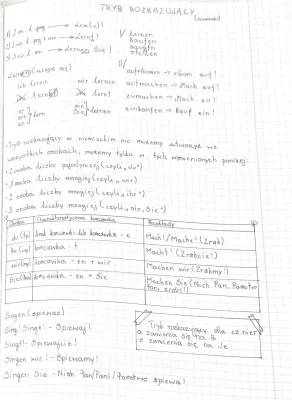 TRYB ROZKAZUJĄCY
1) 2 os. l. poj. → Lern(e)!
2) 2 os. l. mn → Lernt!
3) 3 os. l. mn → Lernen Sie!
V Lernen
kaufen
Lernen (uczyć się)
ich lerne wir lernen
lernt
er
sie
es
lernt
sie
Sie
lernen
II/
aufräumen → räum auf!
aufmachen → Mach auf!
zumachen → Mach zu!
einkaufen → Kauf ein!
-Tryb rozkazujący w niemieckim nie możemy utworzyć we
wszystkich osobach, możemy tylko w tych wymienionych poniżej:
-2 osoba liczby pojedynczej (czyli „du")
-1 osoba liczby mnogiej (czyli „wir")
-2 osoba liczby mnogiej (czyli „ihr")
-3 osoba liczby mnogiej (czyli „sie, Sie")
Osoba Charakterystyczna końcówka Przykłady
du (ty) brak końcówki lub końcówka -e Mach!/Mache! (Zrób)
ihr (wy) końcówka -t Macht! (Zróbcie!)
wir (my) końcówka -en + wir Machen wir (Zróbmy!)
Sie końcówka -en + Sie Machen Sie (Niech Pan, Państwo
Pani zrobi!)
Singen (śpiewać)
Sing! Singe! - Śpiewaj!
Singt! - Śpiewajcie!
Singen wir! - Śpiewamy!
Singen Sie - Niech Pan/Pani/Państwo śpiewa!
Tryb rozkazujący dla cz. nier
a zamienia się na ä
e zamienia się na i/ie